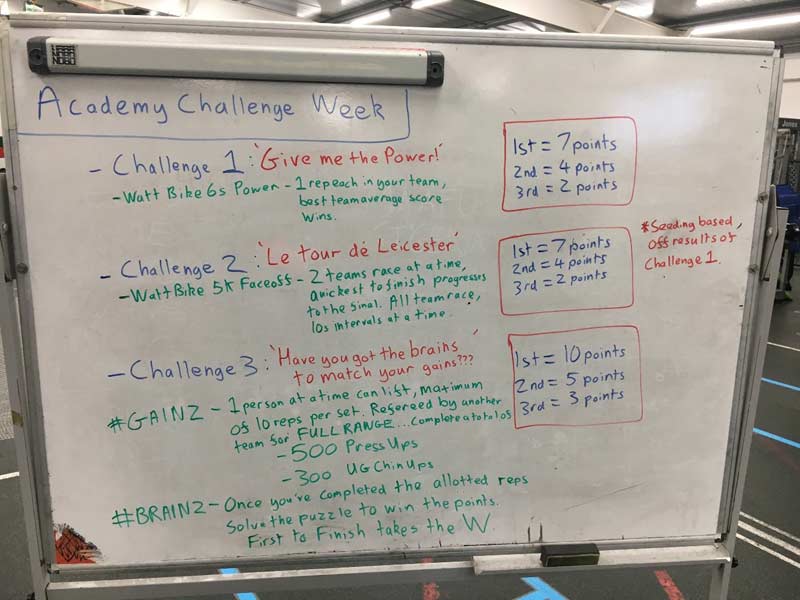 Academy Challenge Week
- Challenge 1: 'Give me the Power!'
- Watt Bike 6s Power - 1 rep each in your team,
best team average score
wins.
1st = 7 points
2nd = 4 points
3rd = 2 points
- Challenge 2: 'Le tour de Leicester'
- Watt Bike 5K Face off - 2 teams race at a time,
quickest to finish progresses
to the final. All team race,
10s intervals at a time.
1st = 7 points
2nd = 4 points
3rd = 2 points
*Seeding based
off results of
Challenge 1.
- Challenge 3: 'Have you got the brains'
to match your gains???
#GAINZ - 1 person at a time can lift, maximum
of 10 reps per set. Refereed by another
team for FULL RANGE... Complete a total of
- 500 Press Ups
- 300 UG Chin Ups
1st = 10 points
2nd = 5 points
3rd = 3 points
#BRAINZ - Once you've completed the allotted reps
Solve the puzzle to win the points.
First to Finish takes the W.